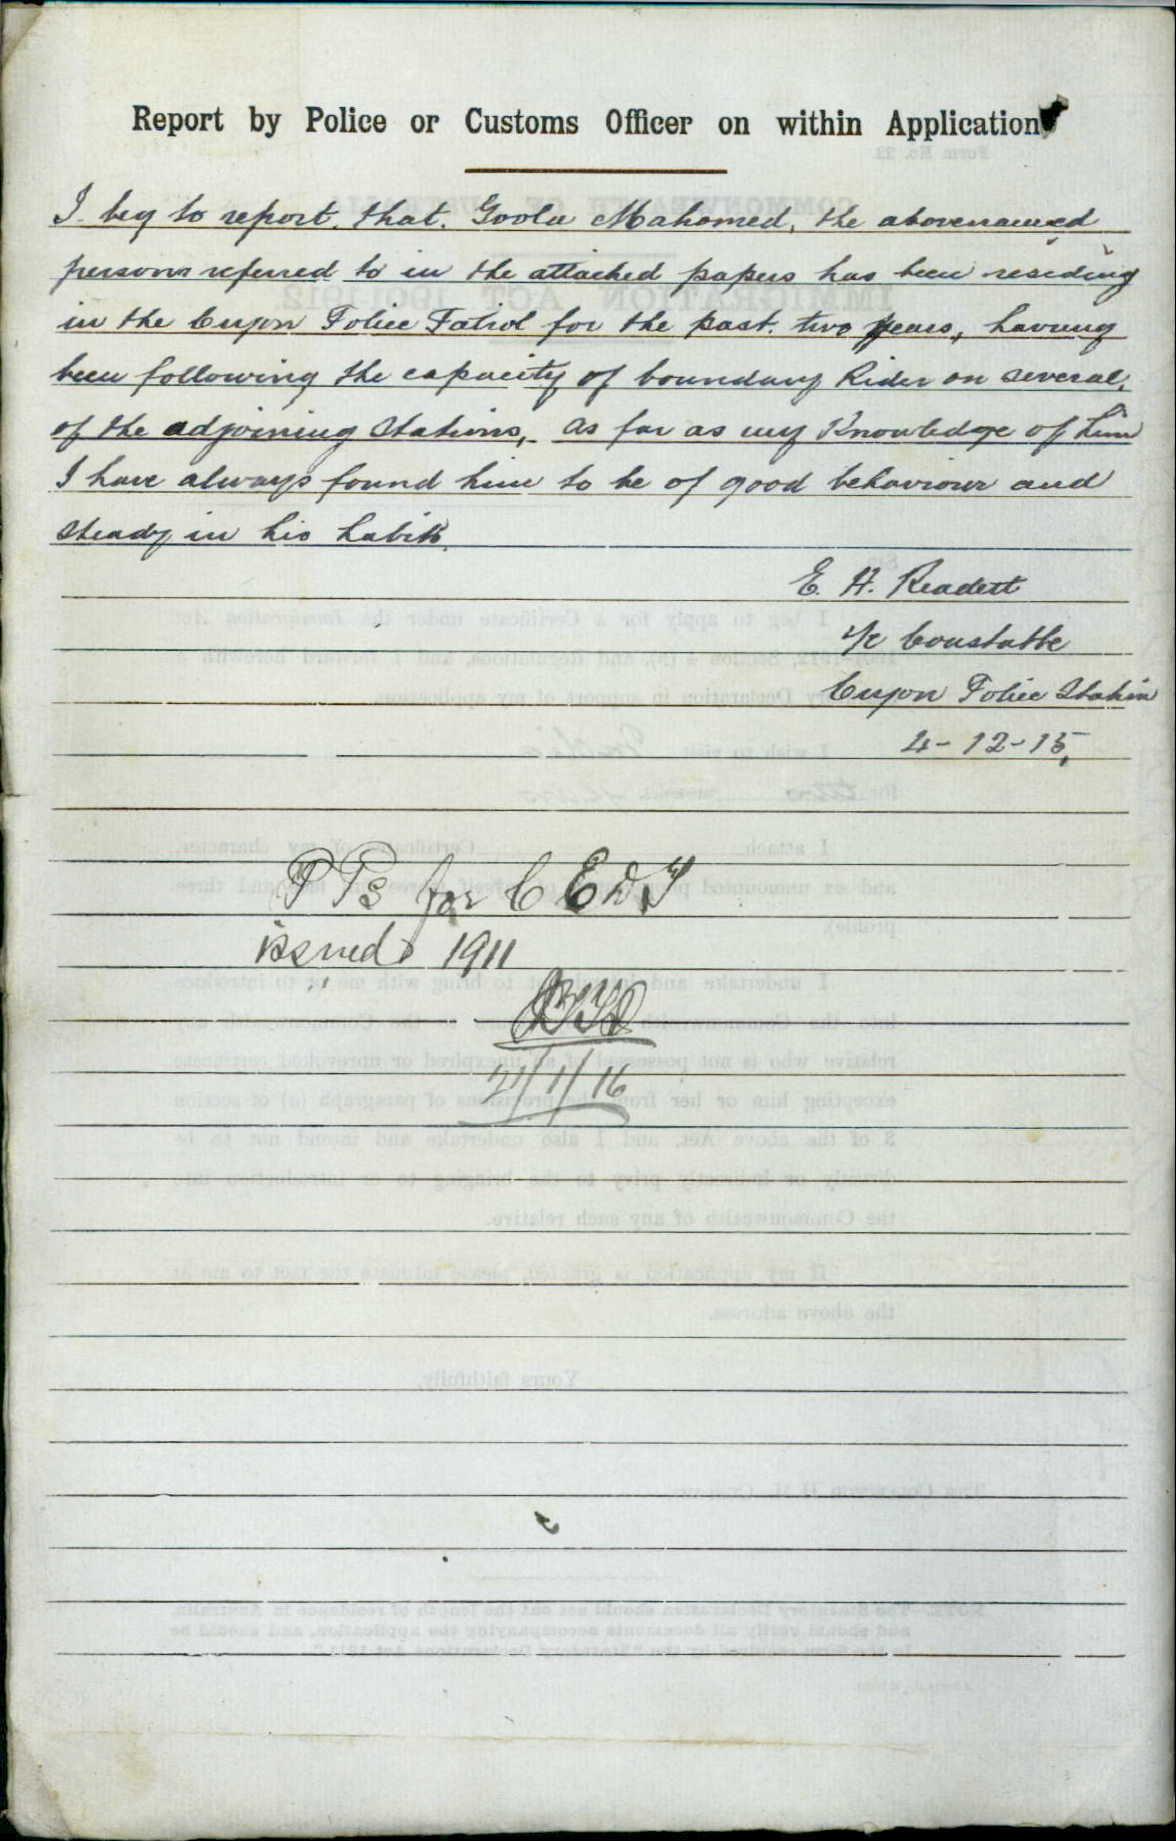 Report by Police or Customs Officer on within Application
I beg to report. that. Goola Mahomed, the abovenamed
persons referred to in the attached papers has been residing
in the Cuyon Police Patrol for the past. two years, having
been following the capacity of boundary Rider on several.
of the adjoining Stations, as far as my Knowledge of him
I have always found him to be of good behaviour and
steady in his habits.
E. H. Readett
Constable
Cuyon Police Station
4-12-15,
P Ps for C E D T
issued 1911
21/1/16